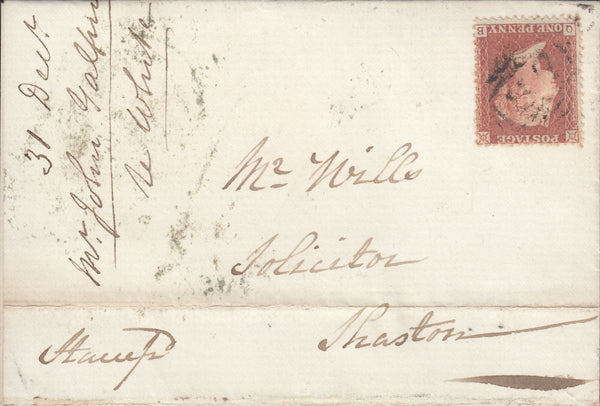 31 Decr
Mr. John Galpin
te White
Mr Wills
Solicitor
Shaston
Stamp
POSTAGE
ONE PENNY
Q E